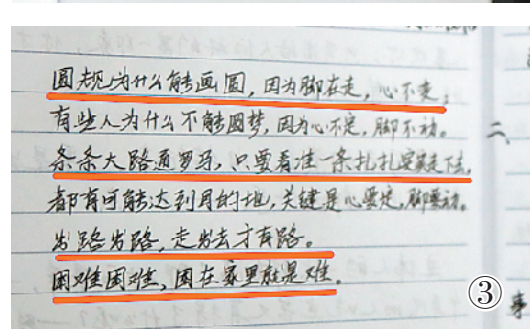 圆规为什么能画圆，因为脚在走，心不变，
有些人为什么不能圆梦，因为心不定，脚不动。
条条大路通罗马，只要看准一条扎扎实实走下去，
都有可能达到目的地，关键是心要定，脚要动。
出路出路，走出去才有路。
困难困难，困在家里就是难。
③
二、